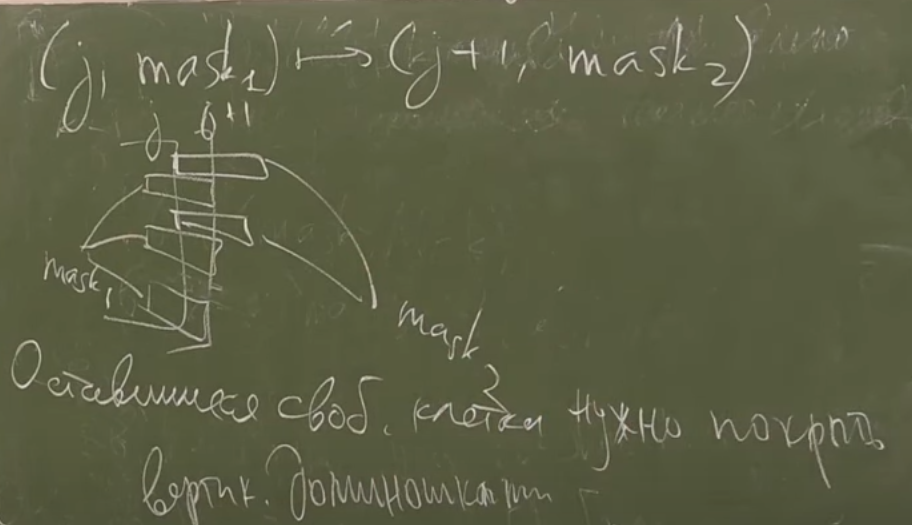 (j, mask₁) ↦ (j+1, mask₂)
j j+1
mask₁
mask₂
Оставшиеся своб. клетки нужно покрыть
вертик. доминошками